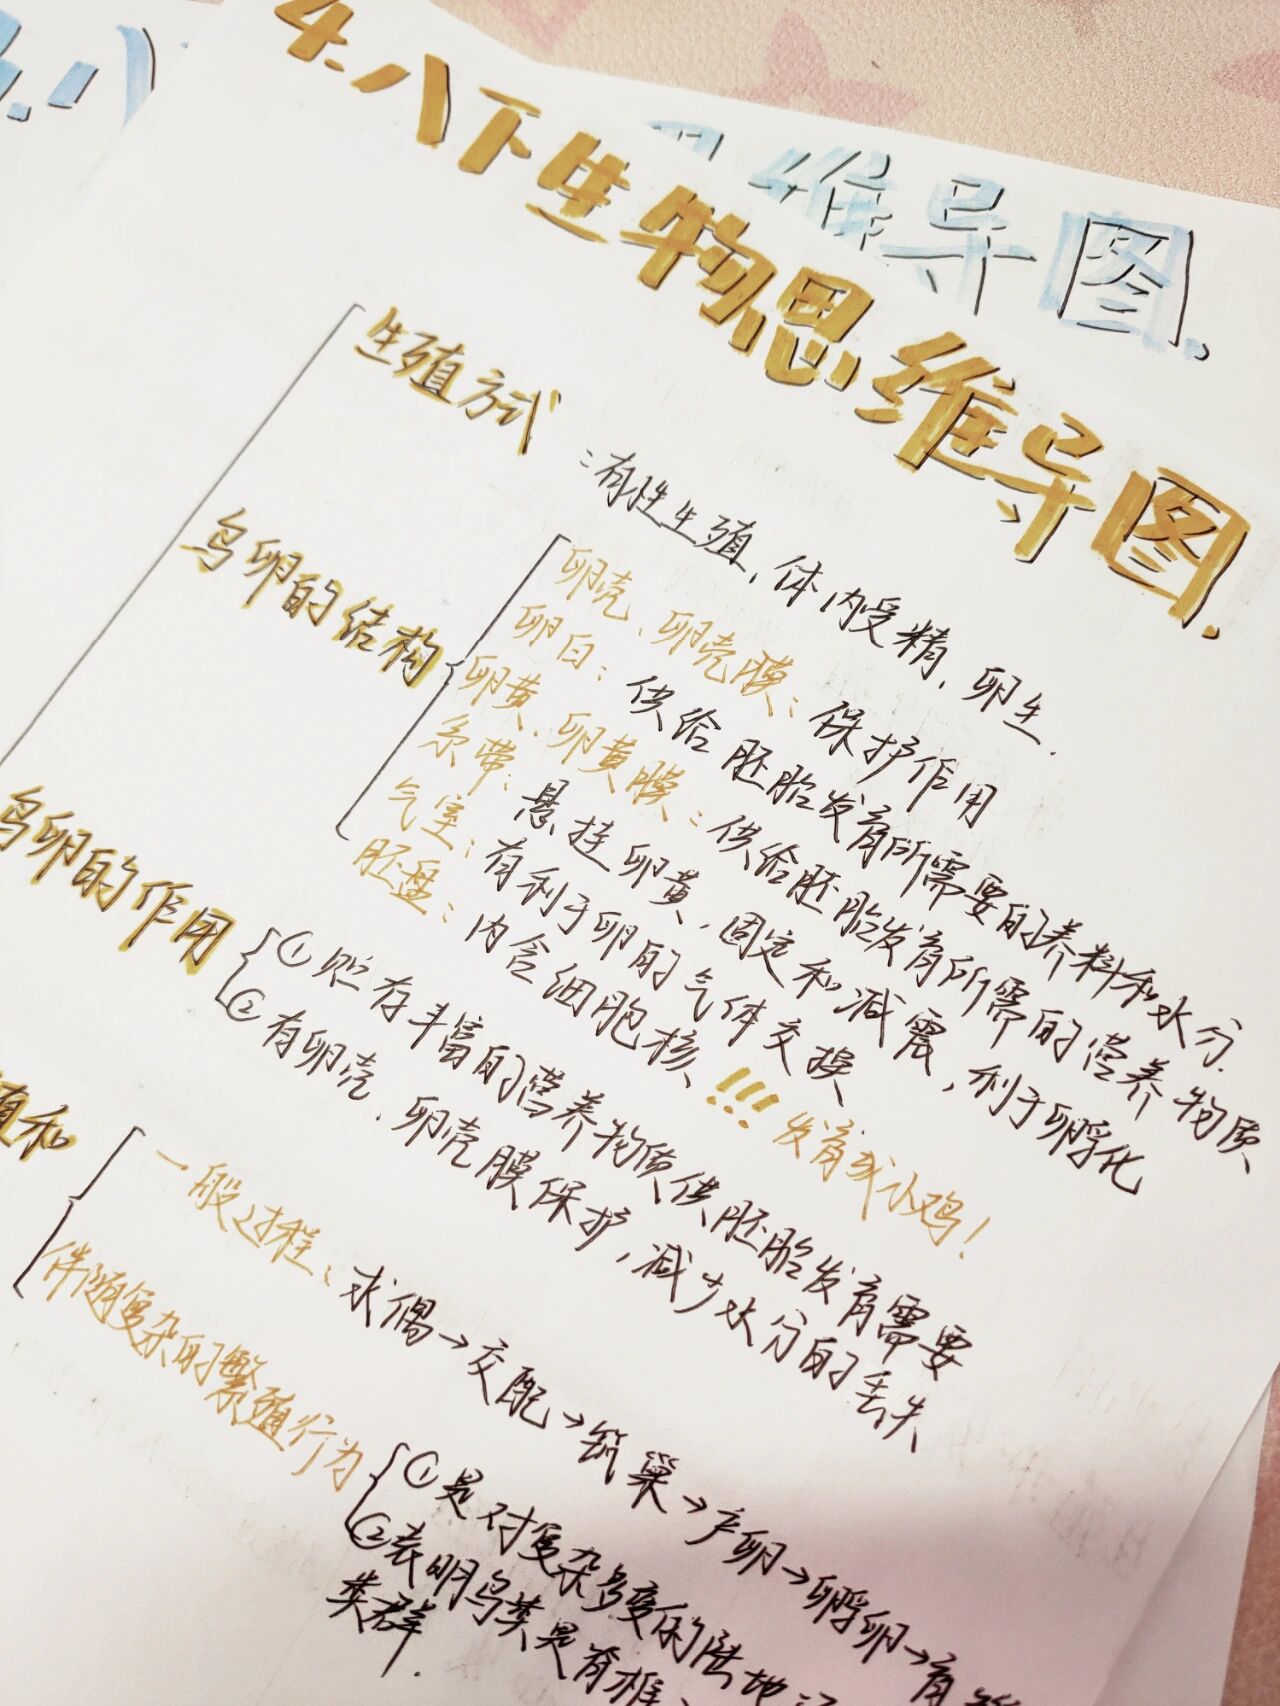 4.八下生物思维导图.
维导图.
生殖方式:有性生殖、体内受精、卵生.
鸟卵的结构
卵壳、卵壳膜:保护作用
卵白:供给胚胎发育所需要的养料和水分.
卵黄、卵黄膜:供给胚胎发育所需的营养物质、
系带:悬挂卵黄,固定和减震,利于孵化
气室:有利于卵的气体交换
胚盘:内含细胞核!!!发育成小鸡!
鸟卵的作用
①贮存丰富的营养物质供胚胎发育需要
②有卵壳、卵壳膜保护,减少水分的丢失
殖和
一般过程:求偶→交配→筑巢→产卵→孵卵→育
伴随复杂的繁殖行为
①是对复杂多变的陆地
②表明鸟类是脊椎
类群.